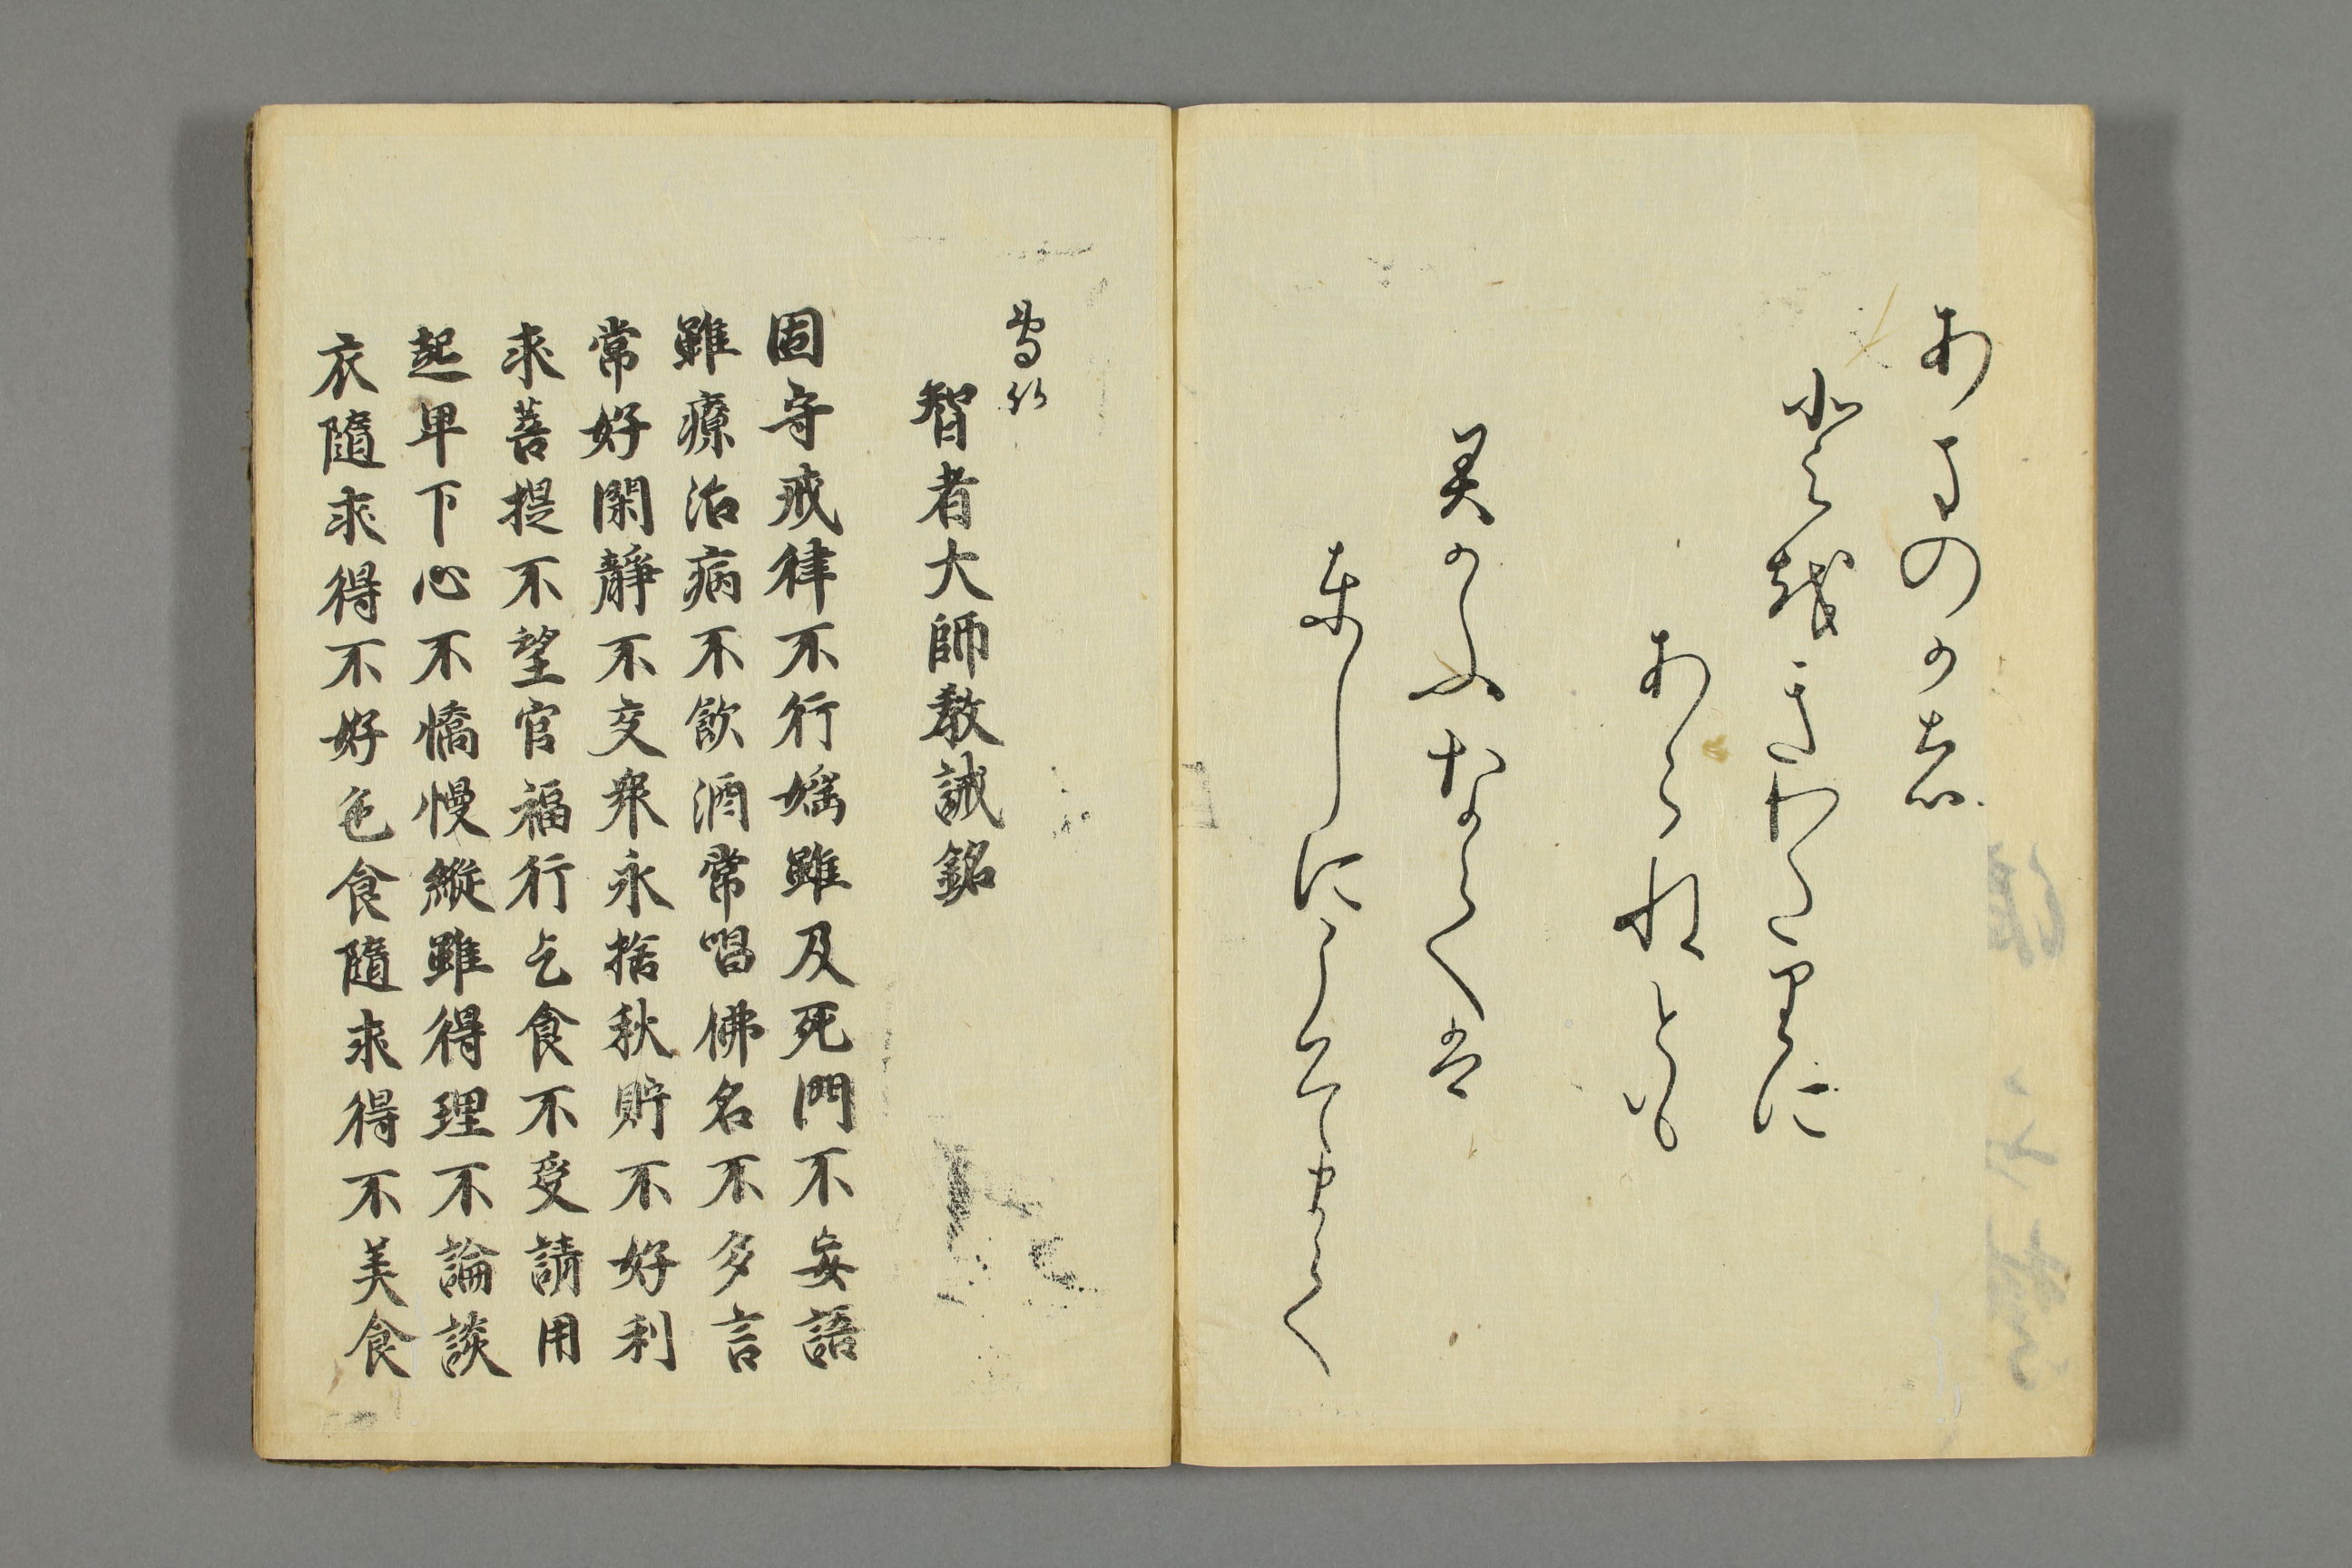 あまのかは
とをきわたりに
あらねとも
君かふなては
としにこそまて
智者大師教誡銘
固守戒律不行婬雖及死門不妄語
雖療治病不飲酒常唱佛名不多言
常好閑靜不交衆永捨秋貯不好利
求菩提不望官福行乞食不受請用
起卑下心不憍慢縱雖得理不論談
衣隨求得不好色食隨求得不美食